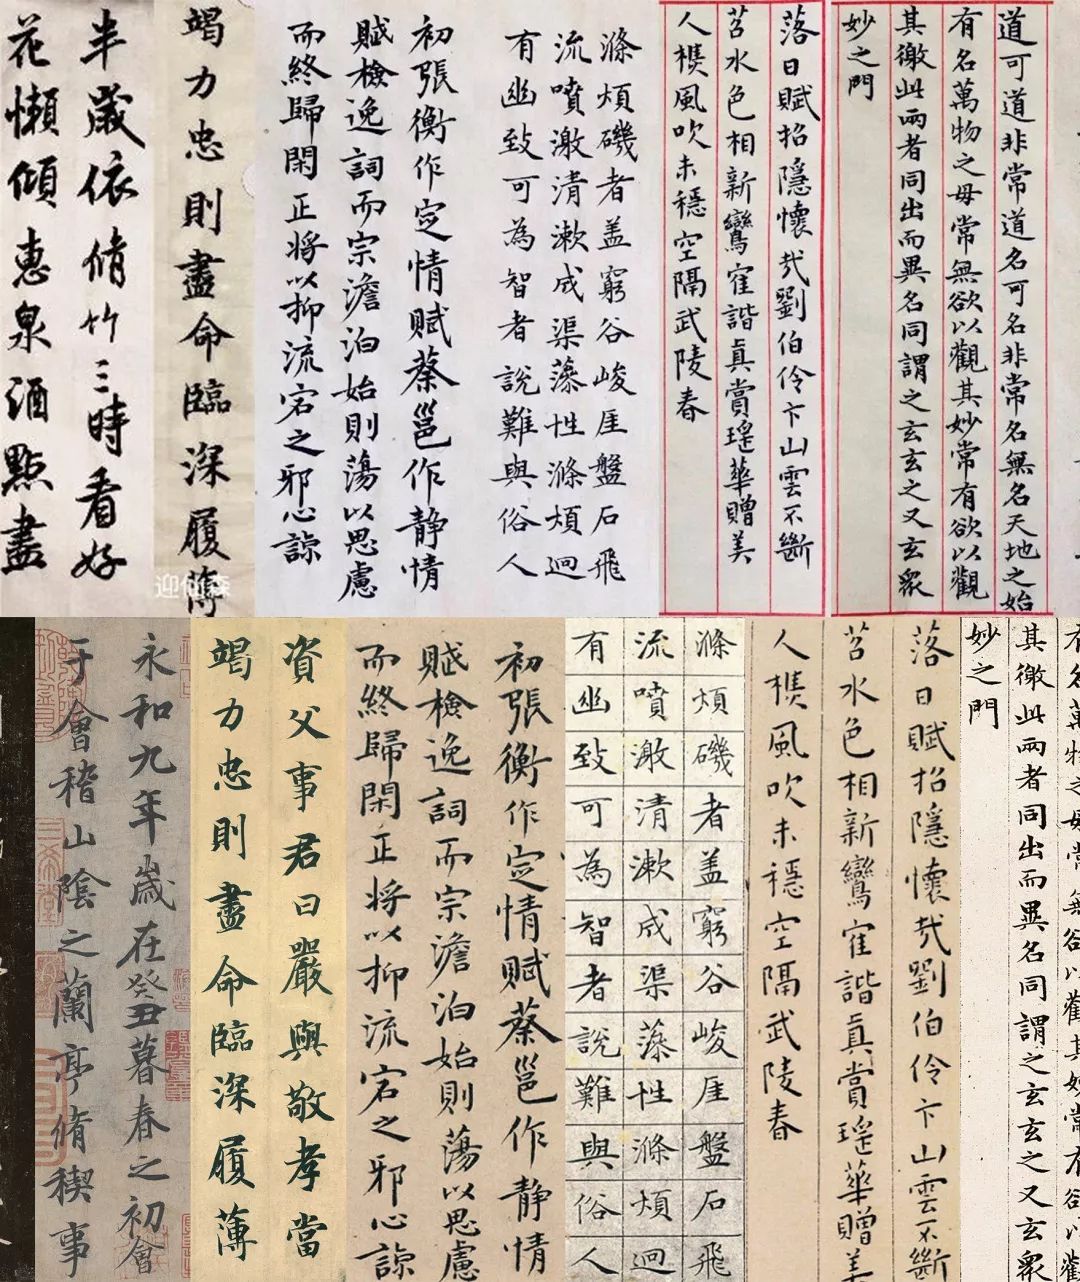 道可道非常道名可名非常名無名天地之始
有名萬物之母常無欲以觀其妙常有欲以觀
其徼此兩者同出而異名同謂之玄玄之又玄眾
妙之門
落日賦招隱懷哉劉伯伶卞山雲不斷
苕水色相新鸞寉諧真賞瑤華贈美
人樵風吹未穩空隔武陵春
滌煩磯者盖窮谷峻厓盤石飛
流噴激清漱成渠藻性滌煩迥
有幽致可為智者說難與俗人
初張衡作定情賦蔡邕作静情
賦檢逸詞而宗澹泊始則蕩以思慮
而終歸閑正將以抑流宕之邪心諒
竭力忠則盡命臨深履薄
半歲依脩竹三時看好
花懶傾惠泉酒點盡
有名萬物之母常無欲以觀其妙常有欲以觀
其徼此兩者同出而異名同謂之玄玄之又玄眾
妙之門
落日賦招隱懷哉劉伯伶卞山雲不斷
苕水色相新鸞寉諧真賞瑤華贈美
人樵風吹未穩空隔武陵春
滌煩磯者盖窮谷峻厓盤石飛
流噴激清漱成渠藻性滌煩迥
有幽致可為智者說難與俗人
初張衡作定情賦蔡邕作静情
賦檢逸詞而宗澹泊始則蕩以思慮
而終歸閑正將以抑流宕之邪心諒
資父事君曰嚴與敬孝當
竭力忠則盡命臨深履薄
永和九年歲在癸丑暮春之初會
于會稽山陰之蘭亭脩稧事